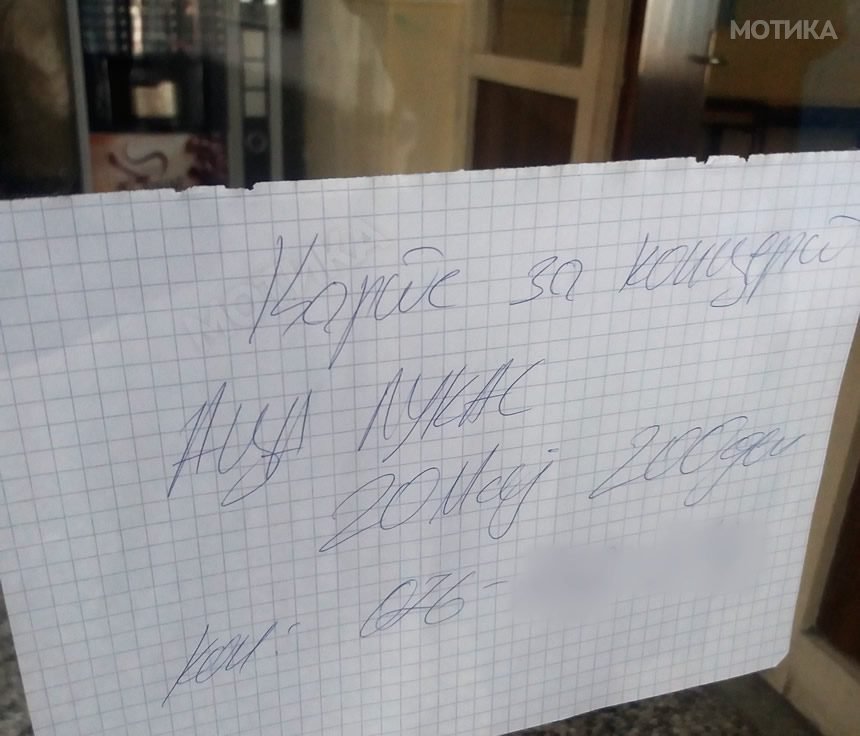 МОТИКА
Карте за концерт
АЦА ЛУКАС
20 Мај 200 ден
кон: 076-